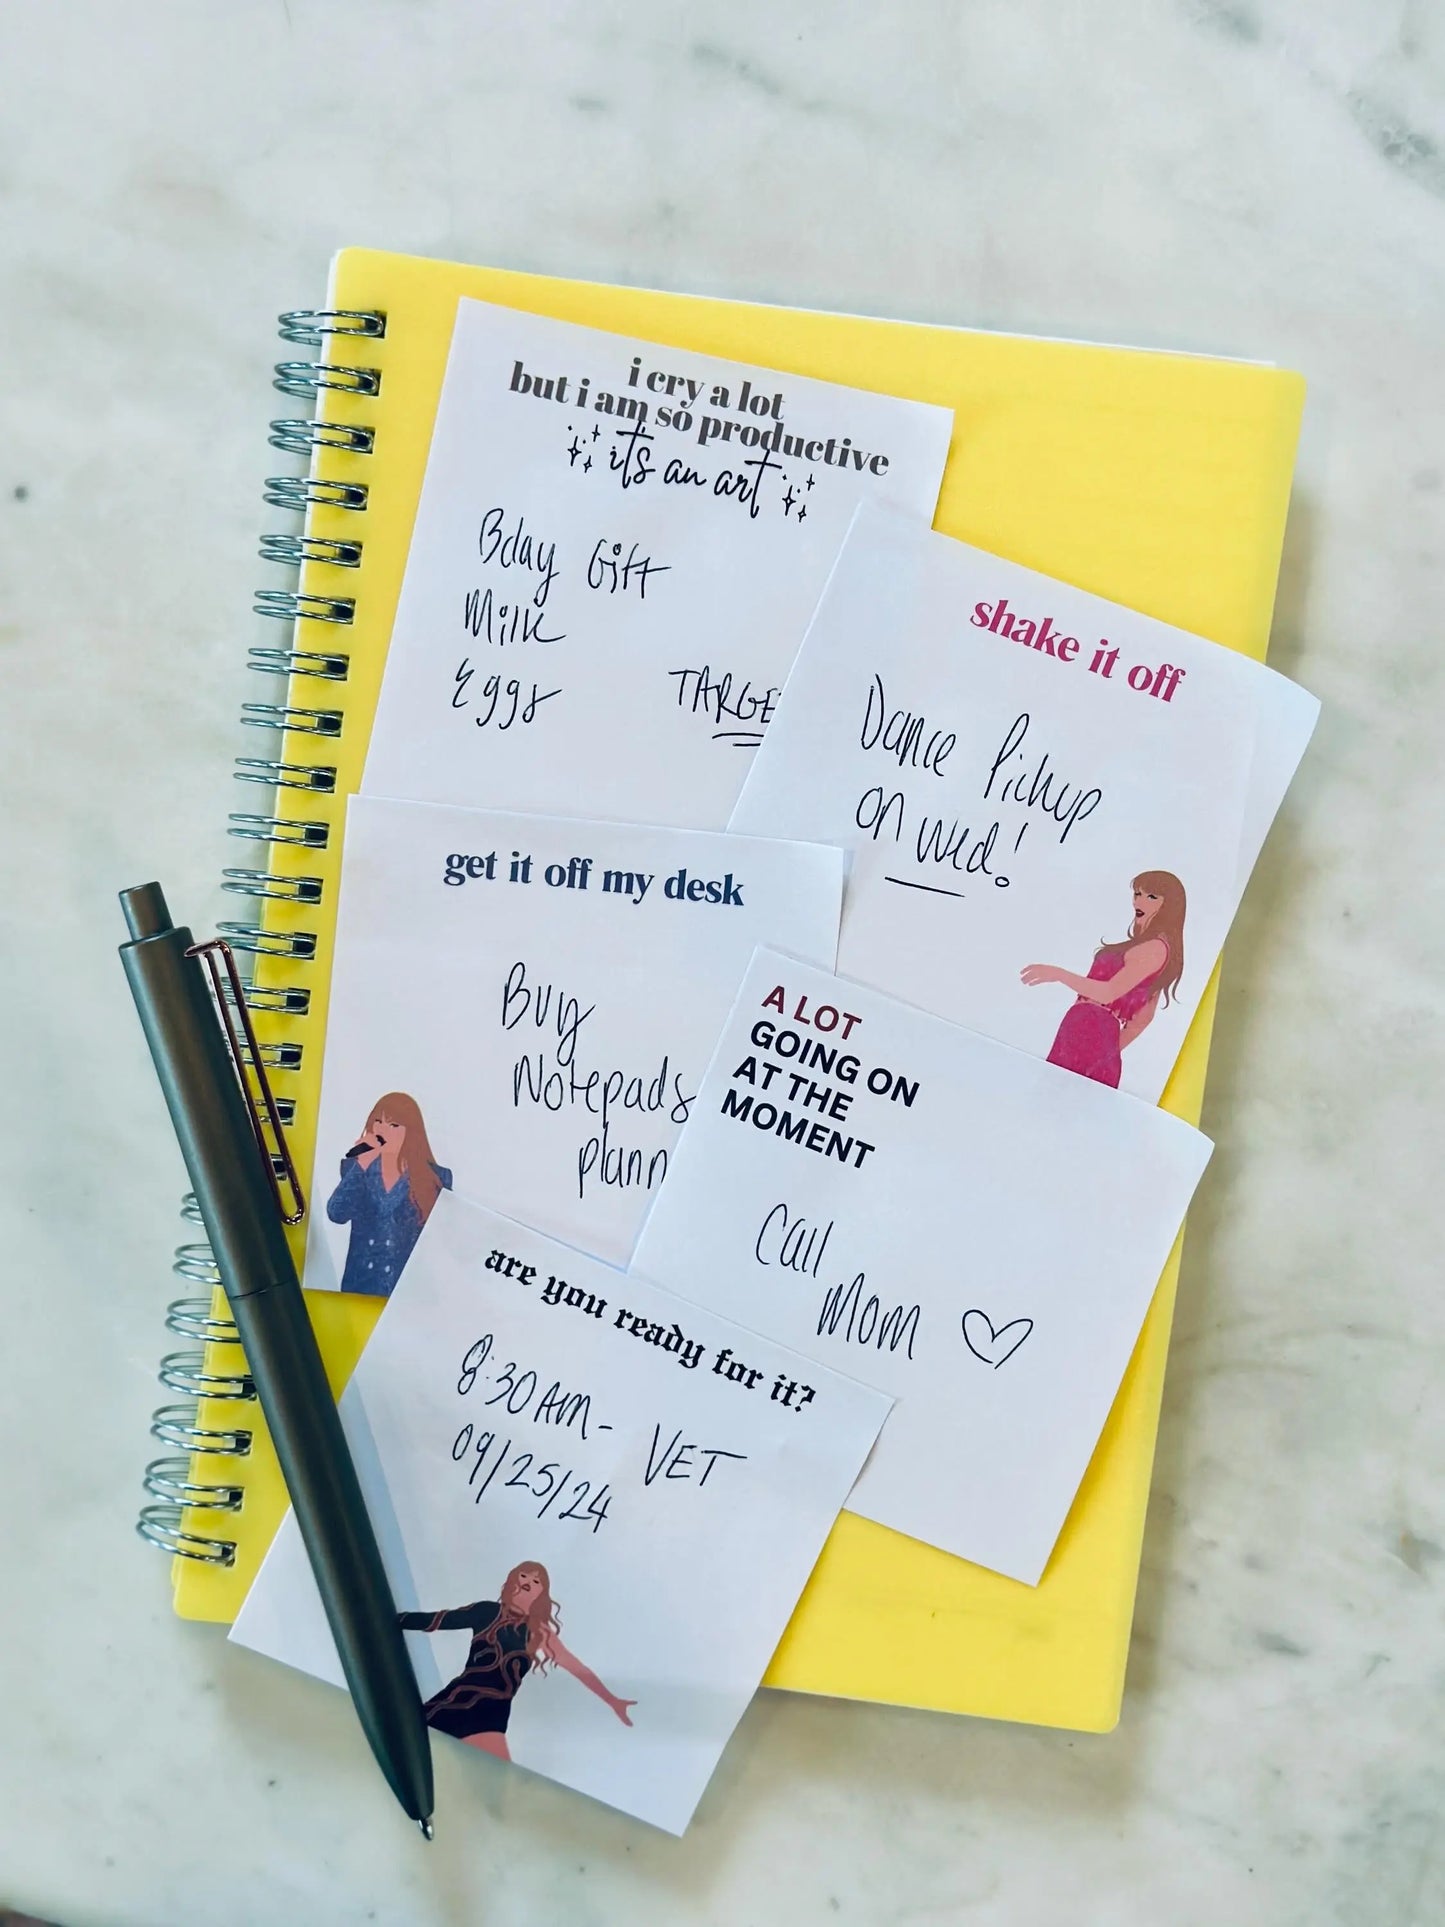 i cry a lot
but i am so productive
it's an art
Bday Gift
Milk
Eggs
TARGE
shake it off
Dance Pickup
on Wed!
get it off my desk
Buy
Notepads
plann
A LOT
GOING ON
AT THE
MOMENT
Call
Mom
are you ready for it?
8:30 AM - VET
09/25/24